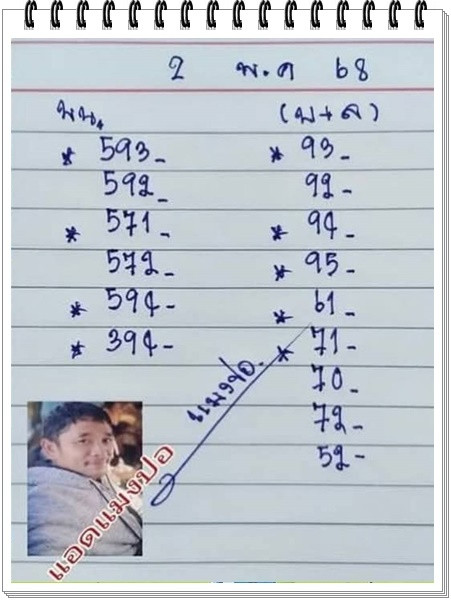 2 พ.ค 68
บน (บ+ล)
* 593- * 93-
592- 92-
* 571- * 94-
572- * 95-
* 594- * 61-
* 394- * 71-
70-
72-
52-
แมงปอ.
แอดแมงปอ